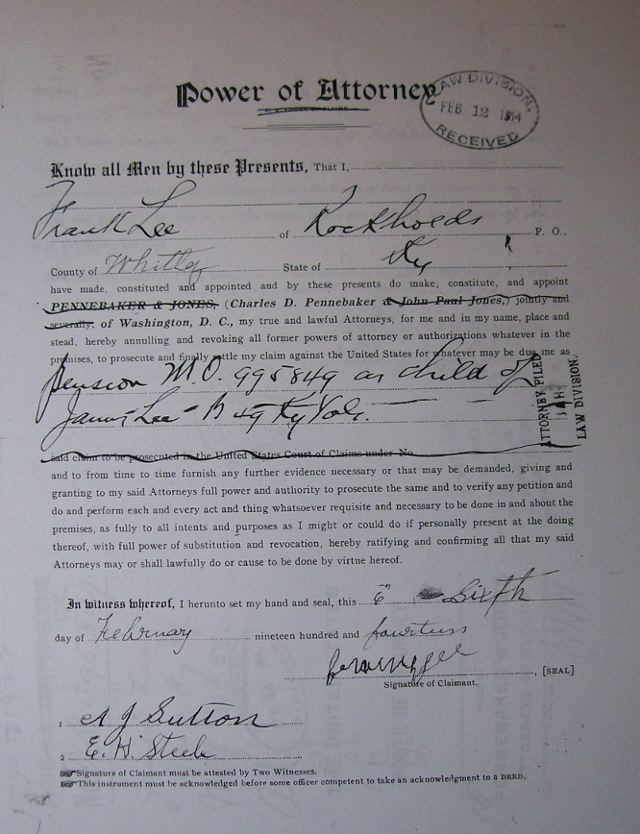 Power of Attorney
LAW DIVISION,
FEB 12 1914
RECEIVED
Know all Men by these Presents, That I,
Frank Lee of Rockholds P. O.,
County of Whitley State of Ky
have made, constituted and appointed and by these presents do make, constitute, and appoint
PENNEBAKER & JONES, (Charles D. Pennebaker & John Paul Jones,) jointly and
severally, of Washington, D. C., my true and lawful Attorneys, for me and in my name, place and
stead, hereby annulling and revoking all former powers of attorney or authorizations whatever in the
premises, to prosecute and finally settle my claim against the United States for whatever may be due me as
pension M.O. 995849 as child of
Lee B 49 Ky Vols.
ATTORNEY FILED
LAW DIVISION.
said claim to be prosecuted in the United States Court of Claims under No.
and to from time to time furnish any further evidence necessary or that may be demanded, giving and
granting to my said Attorneys full power and authority to prosecute the same and to verify any petition and
do and perform each and every act and thing whatsoever requisite and necessary to be done in and about the
premises, as fully to all intents and purposes as I might or could do if personally present at the doing
thereof, with full power of substitution and revocation, hereby ratifying and confirming all that my said
Attorneys may or shall lawfully do or cause to be done by virtue hereof.
In witness whereof, I herunto set my hand and seal, this 6" Sixth
day of February nineteen hundred and fourteen
[SEAL]
Signature of Claimant.
1 A J Sutton
2 E. H. Steele
Signature of Claimant must be attested by Two Witnesses.
This instrument must be acknowledged before some officer competent to take an acknowledgment to a DEED.